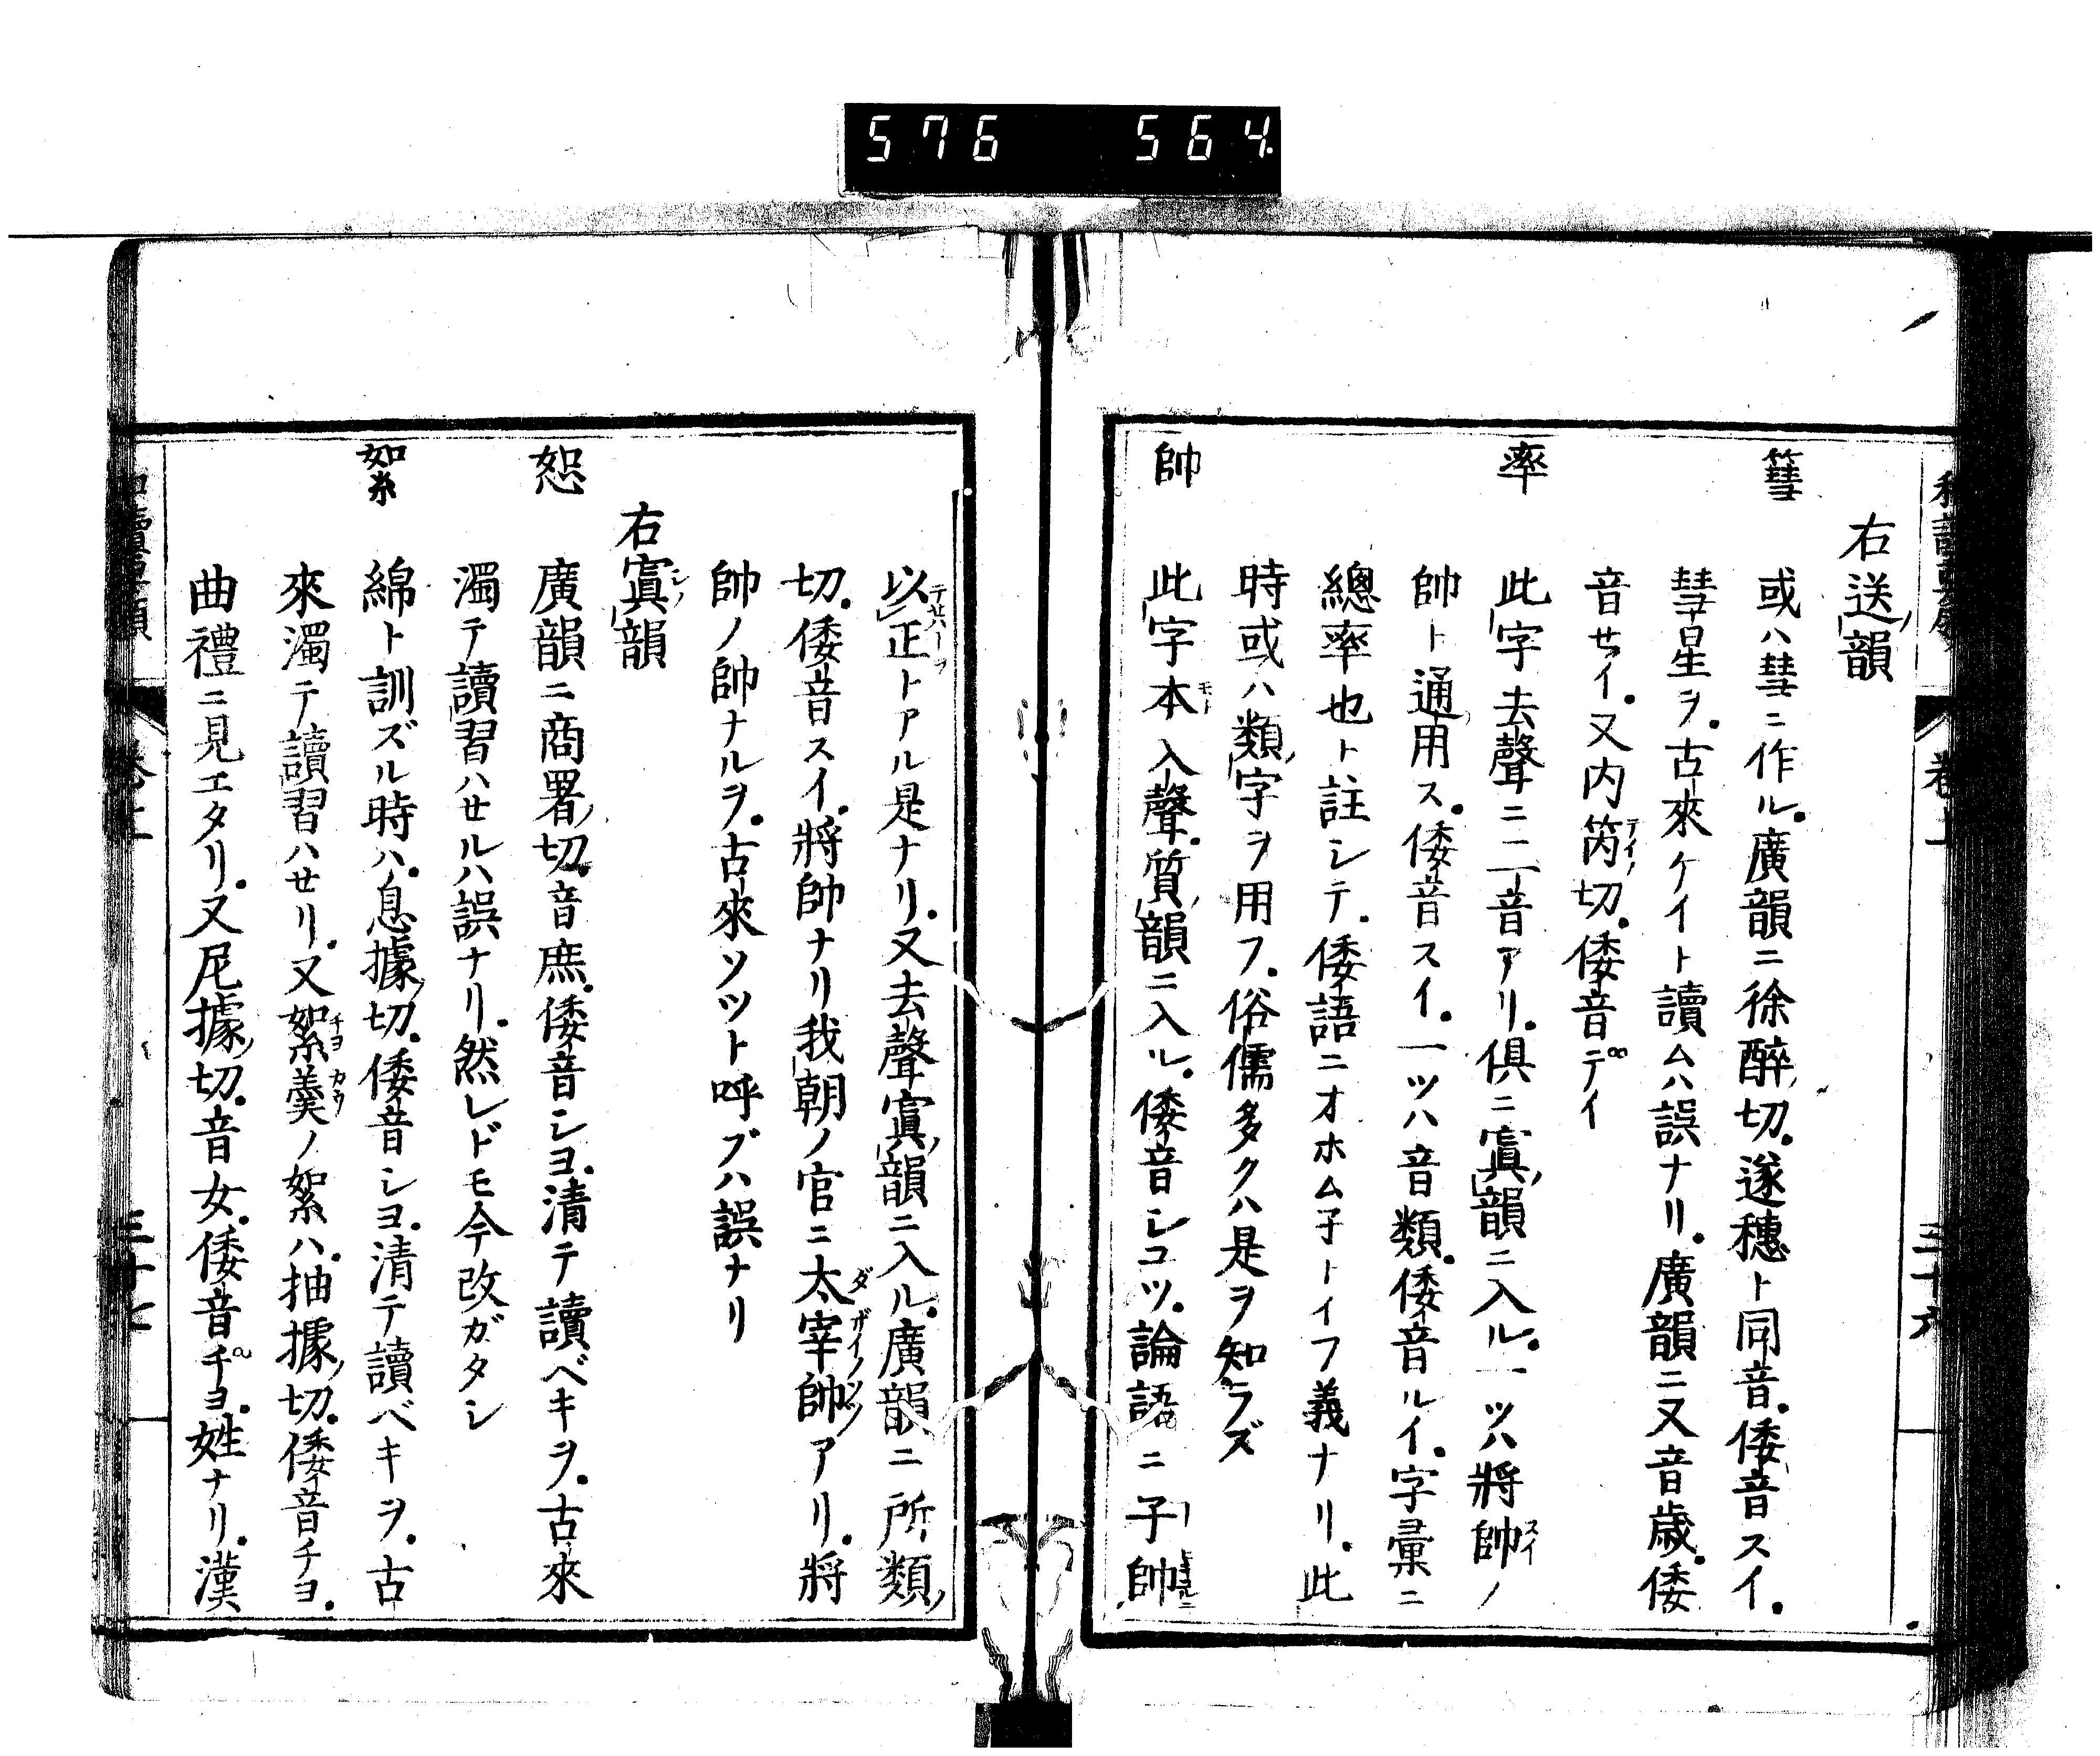 576 564.
右送ノ韻
篲 或ハ彗ニ作ル。廣韻ニ徐醉ノ切。遂穗ト同音。倭音スイ。
彗星ヲ。古來ケイト讀ムハ誤ナリ。廣韻ニ又音歳。倭
音セイ。又内芮ノ切。倭音デイ
率 此ノ字去聲ニ二音アリ。俱ニ寘ノ韻ニ入ル。一ツハ將帥ノ
帥ト通用ス。倭音スイ。一ツハ音類。倭音ルイ。字彙ニ
總率也ト註シテ。倭語ニオホム子トイフ義ナリ。此
時或ハ類ノ字ヲ用フ。俗儒多クハ是ヲ知ラズ
帥 此ノ字本入聲。質ノ韻ニ入ル。倭音シユツ。論語ニ子帥
以正トアル是ナリ。又去聲寘ノ韻ニ入ル。廣韻ニ所類ノ
切。倭音スイ。將帥ナリ我朝ノ官ニ太宰帥アリ。將
帥ノ帥ナルヲ。古來ソツト呼ブハ誤ナリ
右寘ノ韻
恕 廣韻ニ商署ノ切。音庶。倭音シヨ。清テ讀ベキヲ。古來
濁テ讀習ハセルハ誤ナリ。然レドモ今改ガタシ
絮 綿ト訓ズル時ハ。息據ノ切。倭音シヨ。清テ讀ベキヲ。古
來濁テ讀習ハセリ。又絮羹ノ絮ハ。抽據ノ切。倭音チヨ。
曲禮ニ見エタリ。又尼據ノ切。音女。倭音ヂヨ。姓ナリ。漢